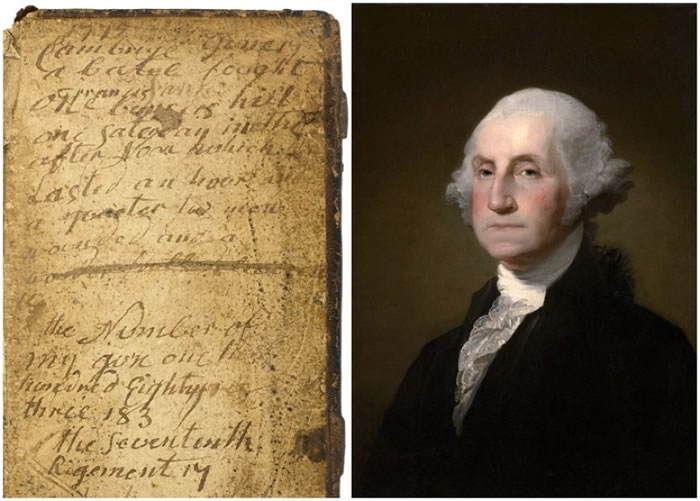 1775
Cambrige Jenery
a batel fought
Francis
one buncus hill
one Saterday in the
after Noon which
Lasted an hour and
a quorter two men
wounded and a
the Number of
my gun one
hundred Eighty
three 183
the Sevententh
Rigement 17